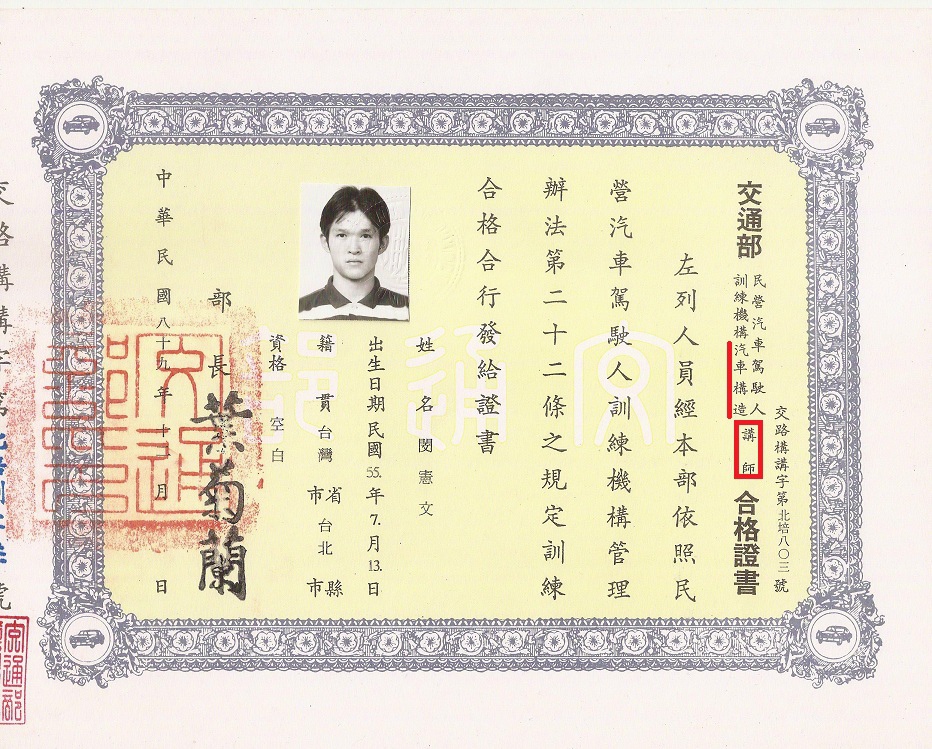 交路構講字第北培八〇三號
交通部 民營汽車駕駛人訓練機構汽車構造講師 合格證書
左列人員經本部依照民
營汽車駕駛人訓練機構管理
辦法第二十二條之規定訓練
合格合行發給證書
姓名 閔憲文
出生日期民國55.年7.月13.日
籍貫台灣省市台北縣市
資格 空白
部長 葉菊蘭
中華民國八十九年十二月 日
交通部
交路構講字第 號
交通部